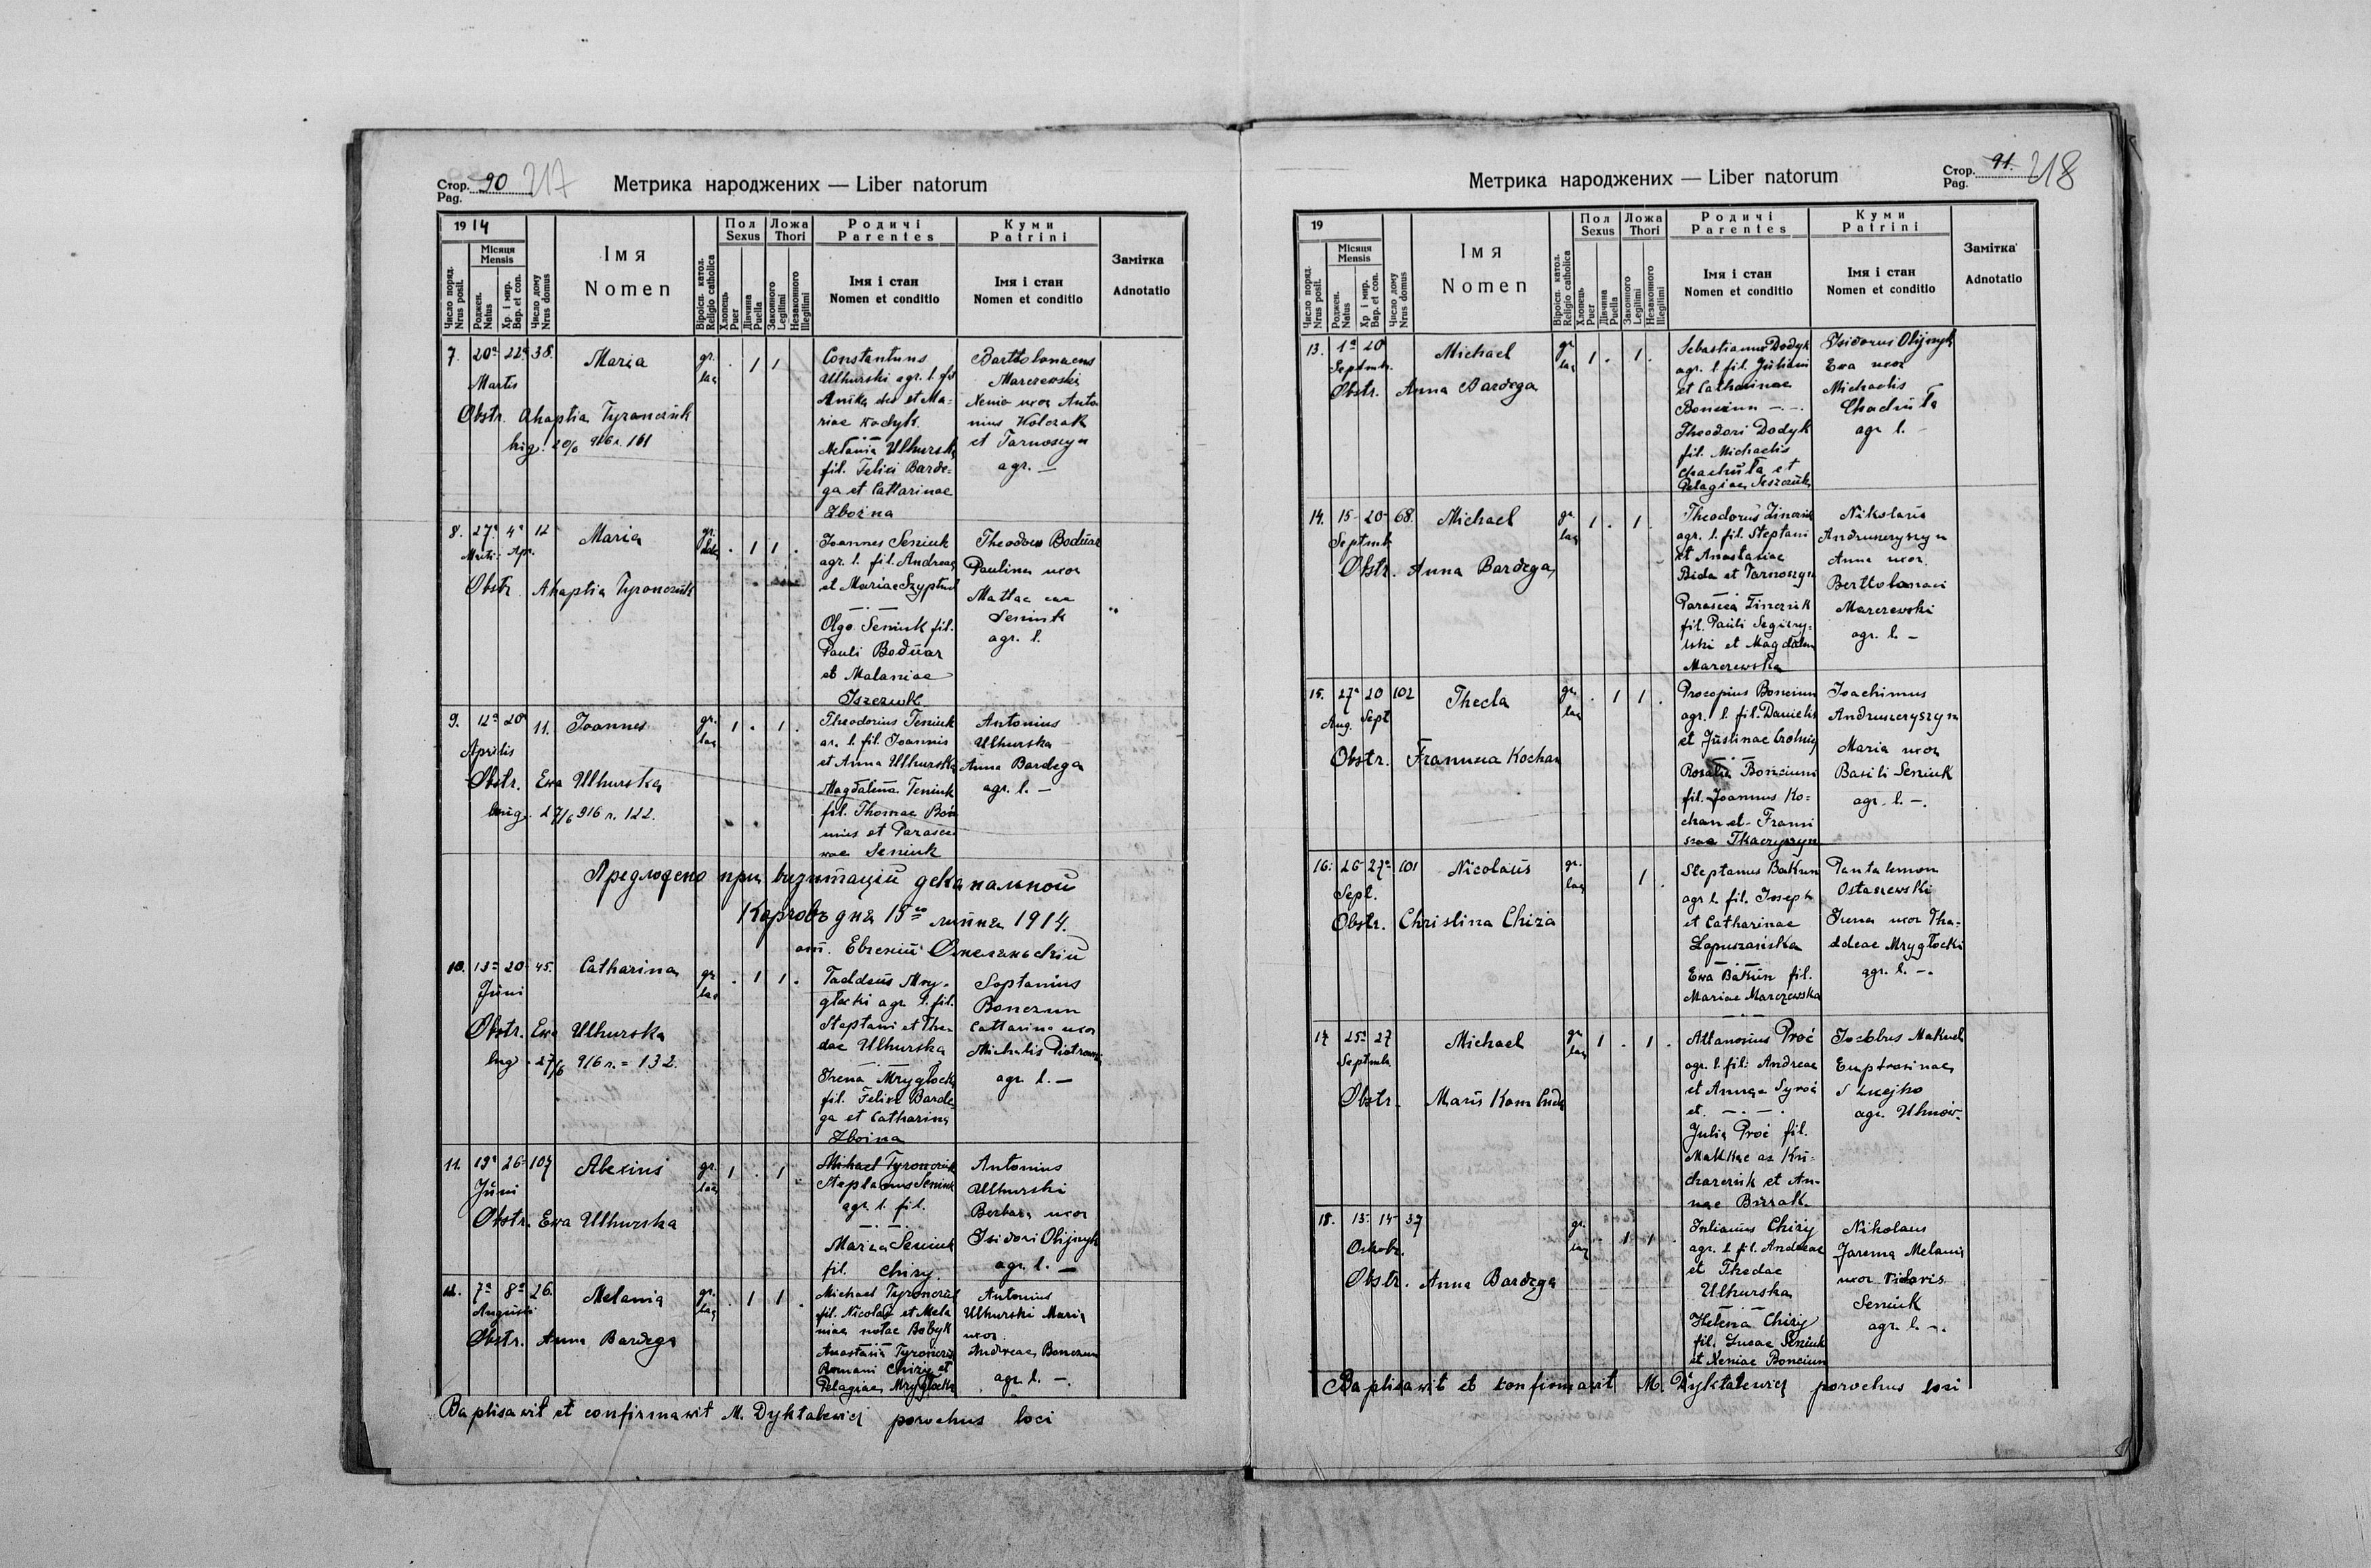 Стор. 90 217
Pag.
Метрика народжених — Liber natorum
1914
Число поряд. Nrus posit.
Місяця
Mensis
Роджен. Natus
Хр. і мир. Bap. et con.
Число дому Nrus domus
Імя
Nomen
Віроісп. катол. Religio catholica
Пол
Sexus
Хлопець Puer
Дівчина Puella
Ложа
Thori
Законного Legitimi
Незаконного Illegitimi
Родичі
Parentes
Імя і стан
Nomen et conditio
Куми
Patrini
Імя і стан
Nomen et conditio
Замітка
Adnotatio
7. 20ª 22ª 38. Maria gr. . 1 1
Martis
Obstr. Ahaptia Tyronczuk
916 r. 161
Constantuns
Ulhurski agr. l. fil
et Ma-
riae Kodyk.
Melania Ulhurska
fil. Felici Barde-
ga et Cattarinae
Zboina
Barttolomaeus
Marczewski
Xenia uxor Anto
nius Kolczak
et Tarnoszyn
agr. —
8. 27ª 4ª 12 Maria gr. . 1 1 .
Martis Apr.
Obstr Ahaptia Tyronczuk
Joannes Seniuk
agr. l. fil. Andreae
et Mariae Szyptur
Olga Seniuk fil.
Pauli Bodnar
et Malaniae
Iszczuk
Theodor Bodnar
Paulina uxor
Seniuk
agr. l.
9. 12ª 20ª 11. Joannes gr. 1 . 1 .
Aprilis
Obstr. Ewa Ulhurska
27/6 916 r. 122.
Theodorius Seniuk
ar. l. fil. Joannis
et Anna Ulhurska
Magdalena Seniuk
fil. Thomae Bon
et Parasce
wae Seniuk
Antonius
Ulhurska
Anna Bardega
agr. l. —
Предложено при визитаціи деканальной
Карговъ дня 15го липня 1914.
от. Евгений
10. 13ª 20 45. Catharina gr. . 1 1 .
Juni
Obstr. Ewa Ulhurska
27/6 916 r. = 132.
Taddeus Mry-
głocki agr. l. fil.
Steptani et The-
dae Ulhurska
Irena Mrygłocka
fil. Felixe Barde-
ga et Catharina
Zboina
Septanius
Bonczun
Cattarina uxor
Michalis Piotrowski
agr. l. —
11. 19ª 26 107 Alexius gr. 1 . 1 .
Juni
Obstr. Ewa Ulhurska
Michael Tyronczuk
Steplanus Seniuk
agr. l. fil.
Maria Seniuk
fil. Chizy.
Antonius
Ulhurski
Barbara uxor
Isidori Olijnyk
agr. l. —
12. 7ª 8ª 26. Melania gr. . 1 1 .
Augusti
Obstr. Anna Bardega
Michael Tyronczuk
fil. Nicolai et Mela
niae notae Babyk
Anastasia Tyronczuk
Romani Chizy et
Pelagiae Mrygłocka
Antonius
Ulhurski Maria
uxor
Andreae Bonczun
agr. l. —.
Baptisawit et confirmawit M. Dyktalewicz porochus loci
Стор. 91. 218
Pag.
Метрика народжених — Liber natorum
19
Число поряд. Nrus posit.
Місяця
Mensis
Роджен. Natus
Хр. і мир. Bap. et con.
Число дому Nrus domus
Імя
Nomen
Віроісп. катол. Religio catholica
Пол
Sexus
Хлопець Puer
Дівчина Puella
Ложа
Thori
Законного Legitimi
Незаконного Illegitimi
Родичі
Parentes
Імя і стан
Nomen et conditio
Куми
Patrini
Імя і стан
Nomen et conditio
Замітка
Adnotatio
13. 1ª 20 Michael gr 1 . 1 .
Septmb.
Obstr. Anna Bardega
Sebastianus Dodyk
agr. l. fil. Juliani
et Catharinae
Bonciun —.—.
Theodori Dodyk
fil. Michaelis
Chachuła et
Pelagiae Seszczuk
Isidorus Olijnyk
Ewa uxor
Michaelis
Chachuła
agr l. —
14. 15 20 68. Michael gr 1 . 1 .
Septmb
Obstr. Anna Bardega
Theodorus Zinczuk
agr. l. fil. Steptani
et Anastasiae
Bida et Tarnoszyn
Parascea Zinczuk
fil. Pauli Segiery-
uski et Magdalena
Marczewska
Nikolaus
Andruszczyszyn
Anna uxor
Berttolomaei
Marczewski
agr. l. —
15. 27ª 20 102 Thecla gr. . 1 1 .
Aug. Sept
Obstr. Kochan
Procopius Bonciun
agr. l. fil. Danielis
et Justinae
Rosalia Bonciun
fil. Joannus Ko-
chan et Franci
scae Tkaczyszyn
Joachimus
Andruszczyszyn
Maria uxor
Basili Seniuk
agr. l. —.
16. 26 27ª 101 Nicolaus gr. 1 .
Sept.
Obstr. Christina Chiza
Steptanus Bakun
agr l. fil. Joseph
et Catharinae
Łopuszańska
Ewa Bakun fil.
Mariae Marczewska
Pantalemon
Ostaszewski
Irena uxor Tha-
ddeae Mrygłocki
agr. l. —.
17 25ª 27 Michael gr 1 . 1 .
Septmb
Obstr.
Attanasius Proć
agr. l. fil. Andreae
et Annae Syroć
et —.—.
Julia Proć fil.
Ku-
charczuk et An-
nae
Jacobus Makuch
agr. Uhnów.
18. 13 14 37 gr. . 1 1 .
Octobr.
Obstr. Anna Bardega
Julianus Chizy
agr. l. fil. Andreae
et Thedae
Ulhurska
Helena Chizy
fil. Lucae Seniuk
et Xeniae Bonciun
Nikolaus
Jarema Melania
uxor
Seniuk
agr. l. —.
Baptisawit et confirmawit M. Dyktalewicz porochus loci